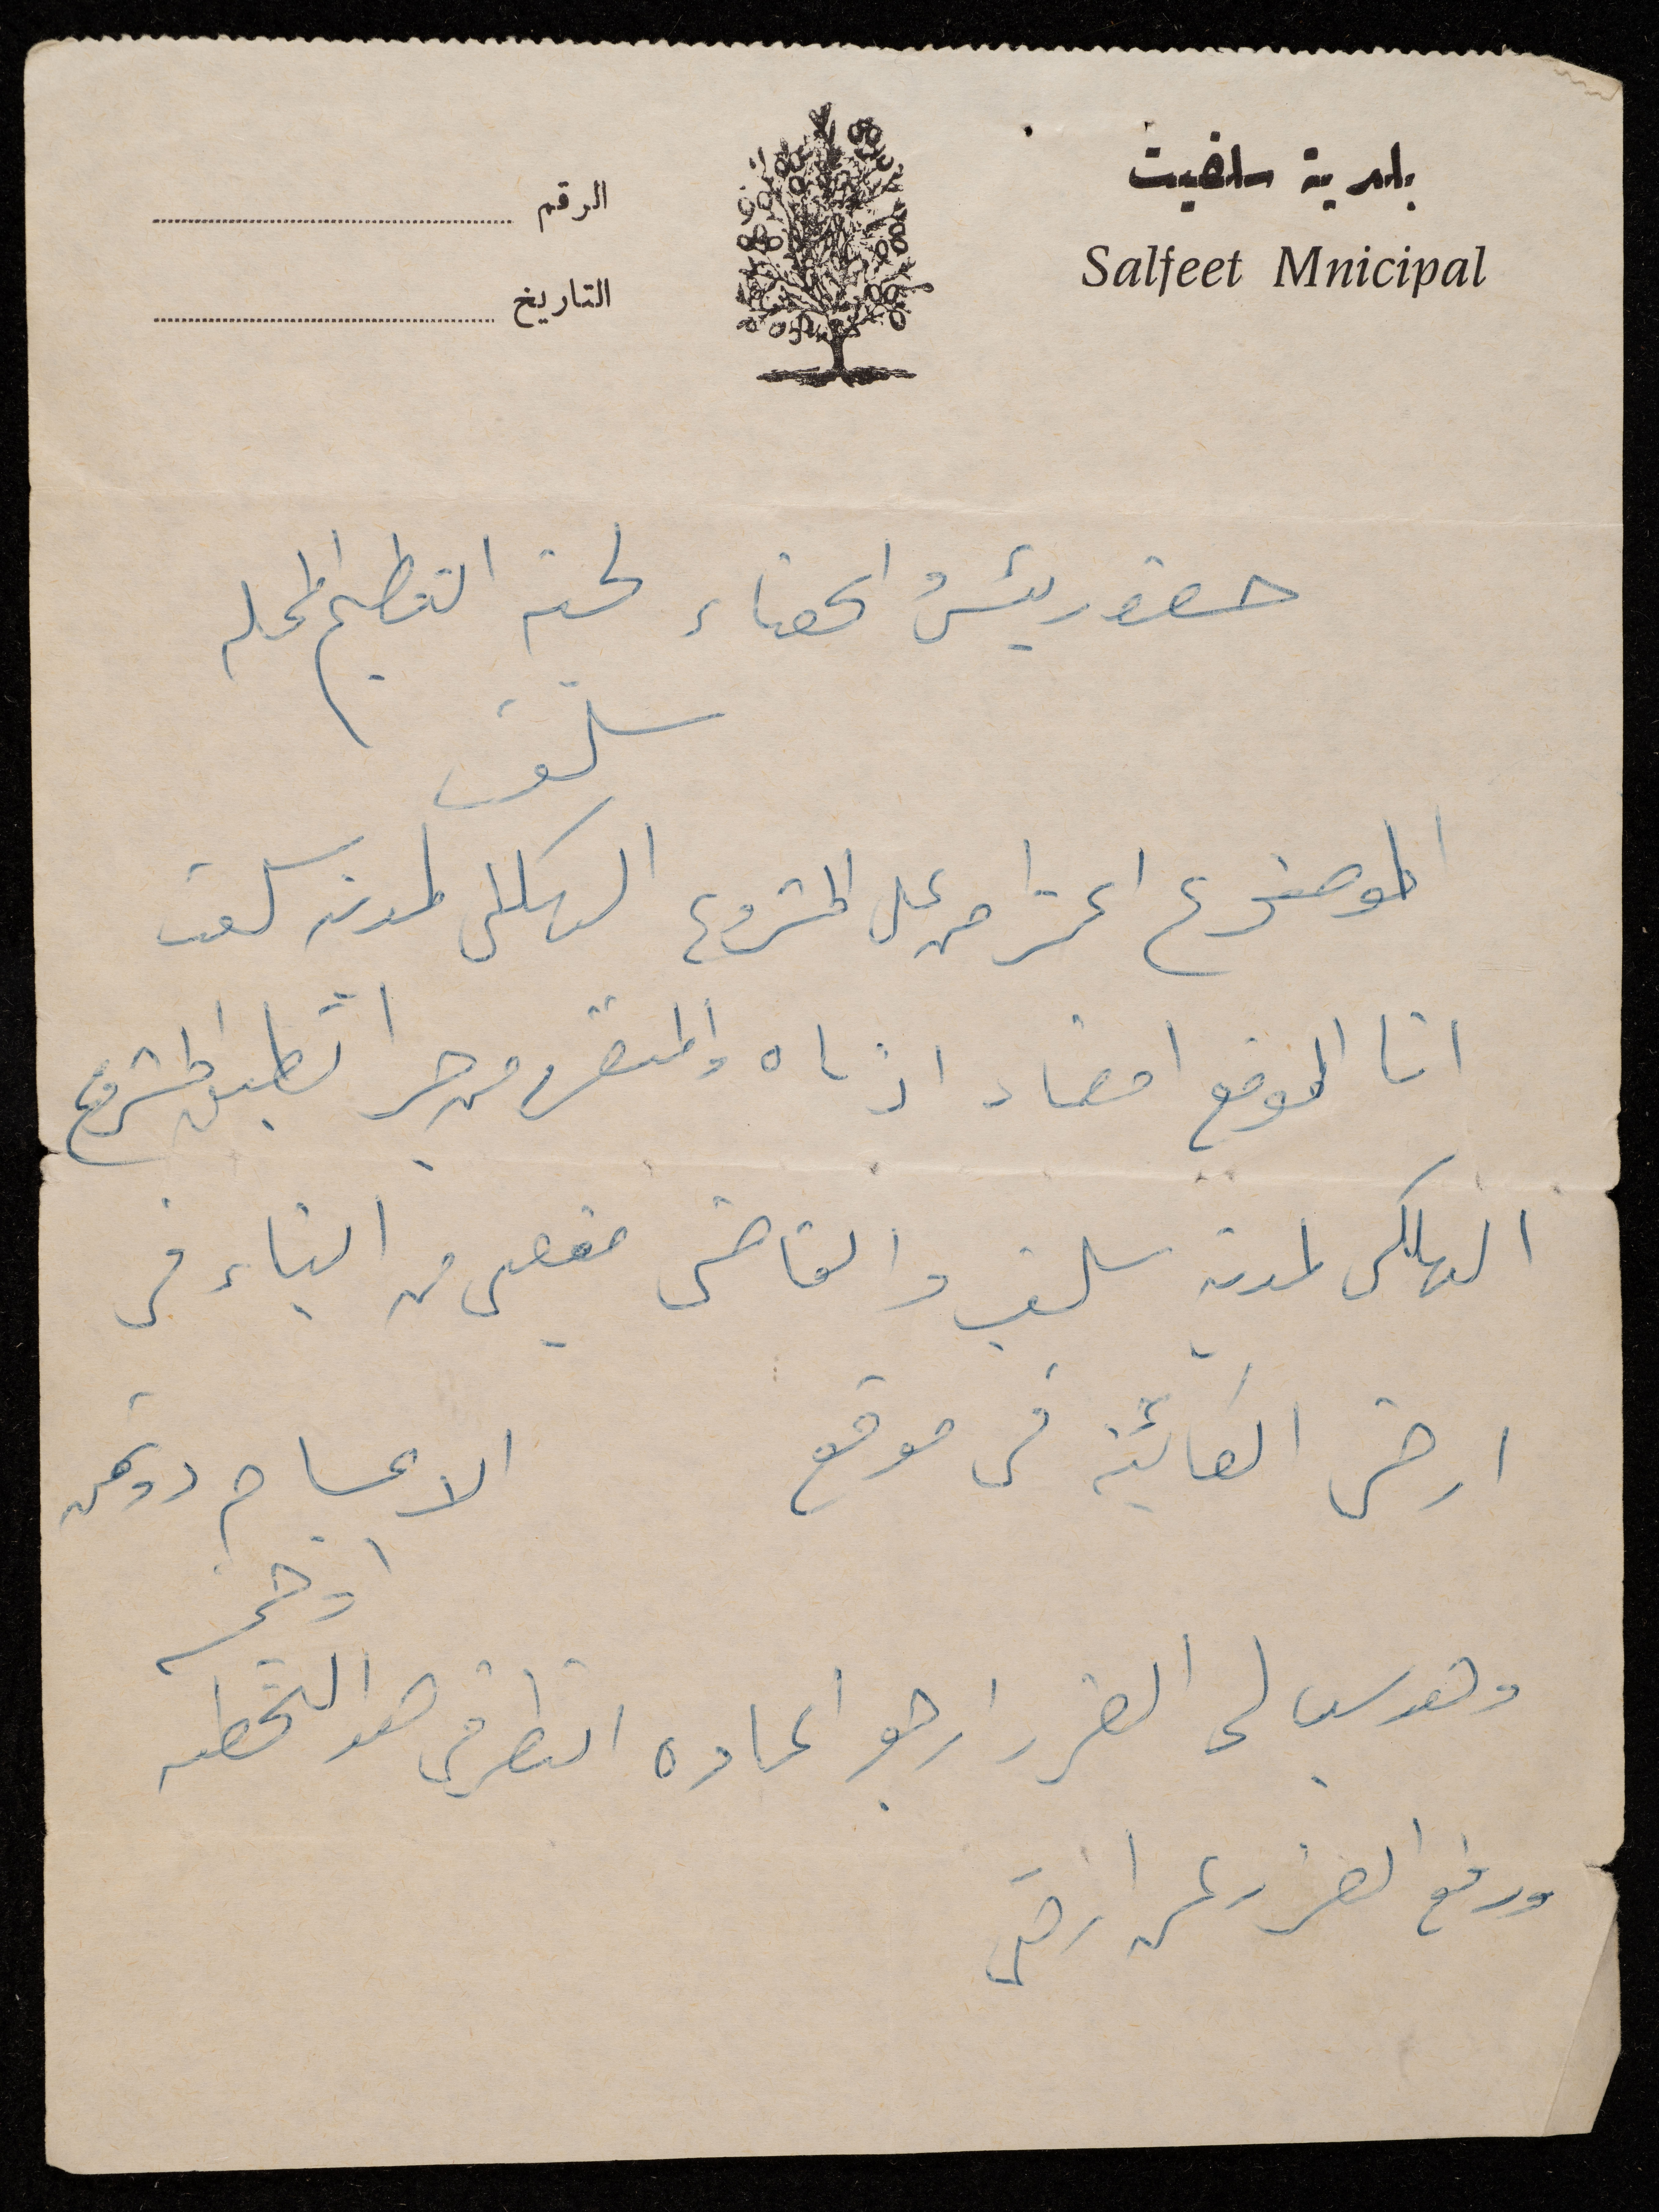 بلدية سلفيت
Salfeet Mnicipal
الرقم
التاريخ
حضور رئيس واعضاء لجنة التنظيم المحليه
سلفيت
الموضوع اعتراض على المشروع الهيكلي لمدينة سلفيت
انا الموقع امضاء ادناه والمتضرر من جرا تطبيق المشروع
الهيكلي لمدينة سلفيت والقاضي من البناء في
ارضي الكائنة في موقع الاعسام دونمين
او خمسه
وهذ سبب لي الضرر ارجو اعاده النظر في هذ التخطيط
ورفع الضرر عن ارضي